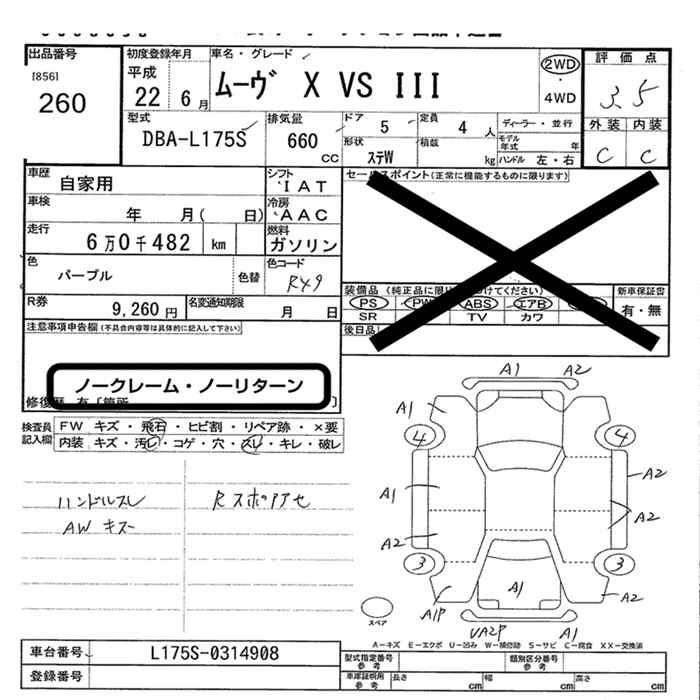 出品番号
[856]
260
初度登録年月
平成
22 6月
車名・グレード
ムーヴ X VS III
2WD
・
4WD
評価点
3.5
外装 内装
C C
型式
DBA-L175S
排気量
660
CC
ドア 5
定員 4 人
形状 ステW
積載 kg
ディーラー・並行
モデル年式 年
ハンドル 左・右
車歴 自家用
シフト IAT
車検 年 月( 日)
冷房 AAC
走行 6万0千482 km
燃料 ガソリン
色 パープル
色替
色コード R49
R券 9,260円
名変通知期限 月 日
セールスポイント(正常に機能するものに限ります)
装備品 (純正品に限り
けてください)
新車保証書
有・無
PS PW ABS エアB
SR TV カワ
後日品
注意事項申告欄(不具合内容等は具体的に記入して下さい)
ノークレーム・ノーリターン
修復歴 有〔箇所 〕
検査員
記入欄
FW キズ・飛石・ヒビ割・リペア跡・×要
内装 キズ・汚レ・コゲ・穴・スレ・キレ・破レ
ハンドルスレ
AW キズ
Rスポアアセ
A1 A2
A1
4 4
A1 A2
A2
A2
3 3
A1
A1P A2
UA2P A1
スペア
A−キズ E−エクボ U−凹み W−補修跡 S−サビ C−腐食 XX−交換済
車台番号 L175S-0314908
登録番号
型式指定番号
参考
類別区分番号
参考
車庫証明用
参考
長さ cm 幅 cm 高さ cm